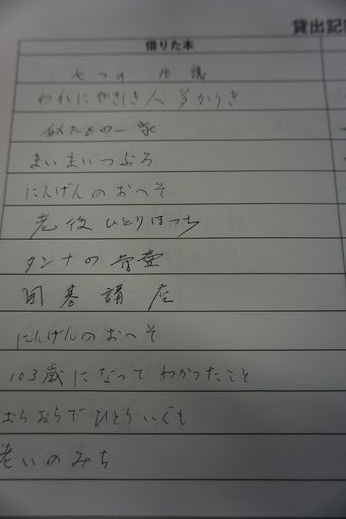 貸出記
借りた本
七つの会議
われにやさしき人多かりき
似たもの一家
まいまいつぶろ
にんげんのおへそ
老後ひとりぼっち
タンナの骨壷
囲碁講座
にんげんのおへそ
103歳になってわかったこと
おらおらでひとりいぐも
老いのみち